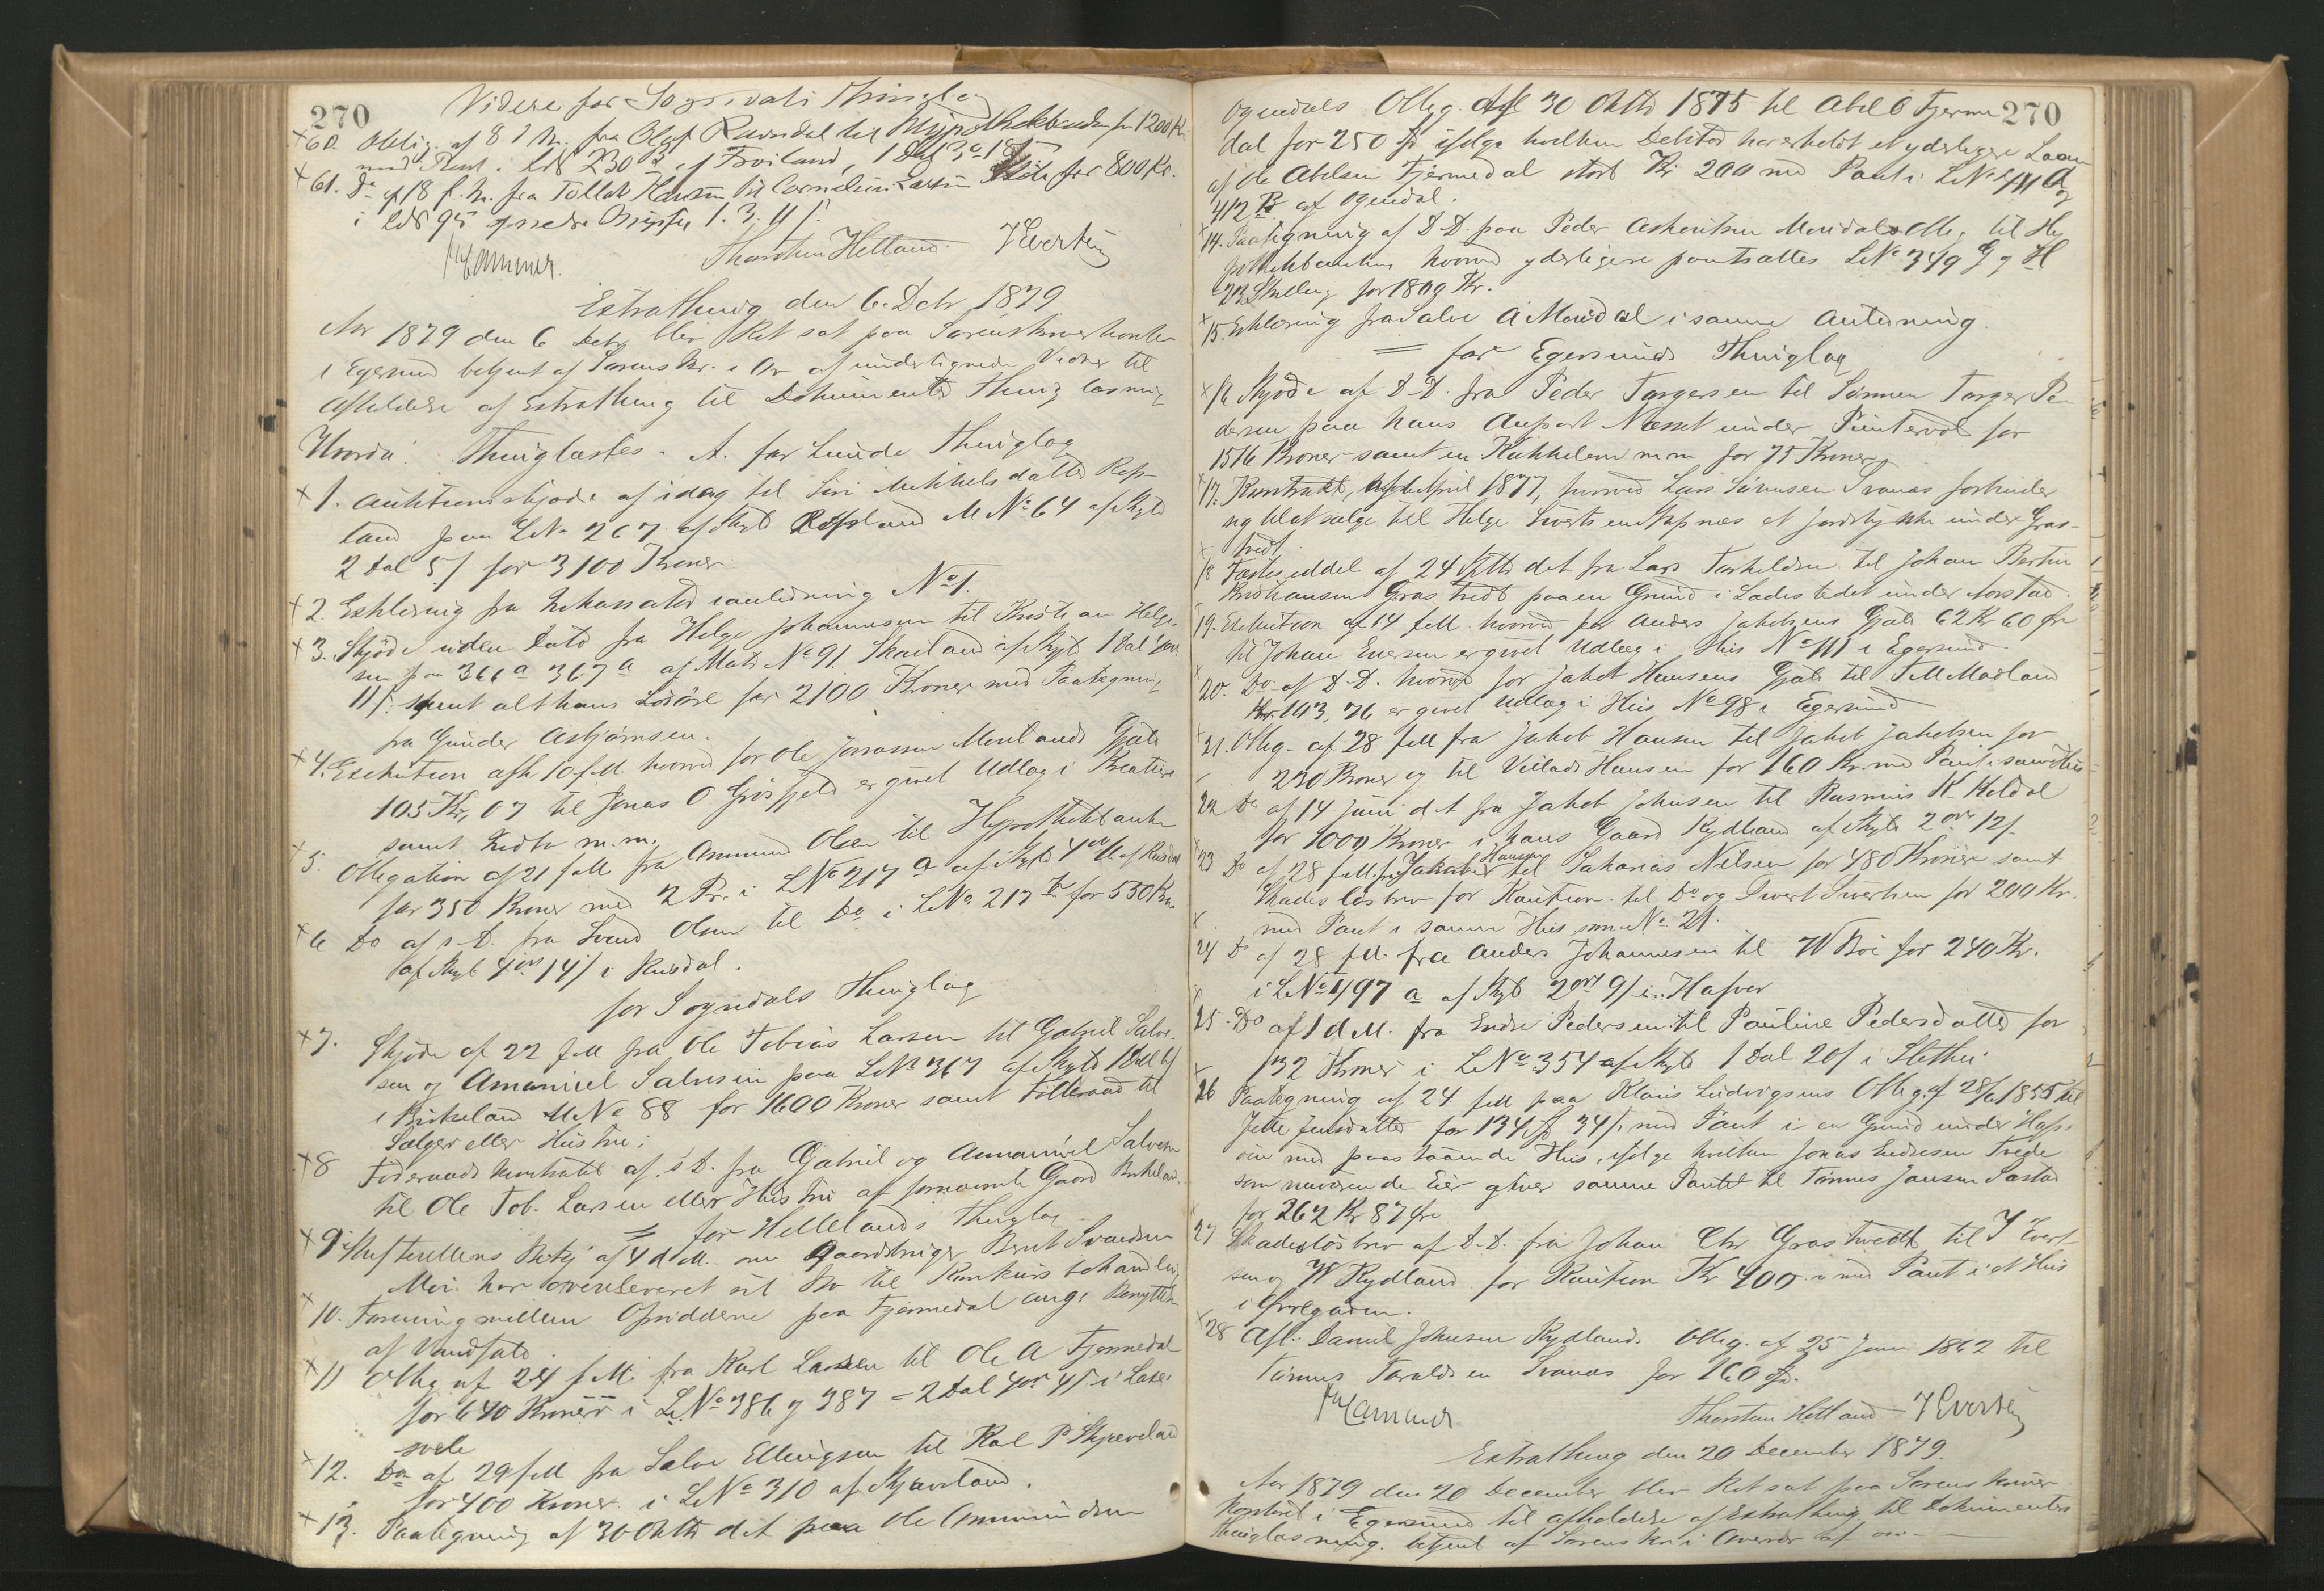 270
Videre for Sogndals Thinglag
60. Oblig. af 8 f. M. fra Olaf Ruusdal til Hypothekbanken for 1200 Kr.
med Pant i LN 230 a af Froiland, 1 Dal 3 o 18 /
61. Do af 18 f. M. fra Tollak Hansen til Cornelius Larsen for 800 Kr.
i LN 95 1. 3. 11 /.
Hammer. Thorsten Hetland IEvertsen
Extrathing den 6. Dcbr 1879
Aar 1879 den 6 Decbr blev Ret sat paa Sorenskriverkontor
i Egersund betjent af Sorenskr. i Ov. af undertegnede Vidner til
Afholdelse af Extrathing til Dokumenters Thinglæsning
Hvorda Thinglæstes - A. for Lunde Thinglag
1. Auktionsskjøde af idag til Siri Mikkelsdatter Refs-
land paa LN. 267 af Skyld Refsland M No 64 af Skyld
2 dal 5 / for 3100 Kroner
2. Erklæring fra i anledning No 1.
3. Skjøde uden Dato fra Helge Johannesen til Kristian Helge-
sen paa 366 a 367 a af Mats No 91 Skailand af Skyld 1 Dal
11 /. samt alt hans Løsøre for 2100 Kroner med Paategning
fra Gunder Asbjørnsen.
4. Exekution afh 10 f. M. hvorved for Ole Jonassen Moulands Gjæld
105 Kr, 07 til Jonas O Grøsfjeld er givet Udlæg i Kreature
samt m.m.
5. Obligation af 21 f M fra Ommund Olsen til Hypothekbanken
for 350 Kroner med 2 Pr. i LNo 217 a af Skyld af Rusdal
6 Do af s. D. fra Svend Olsen til Do i LNo 217 b for 550 Kr.
af Skyld 4 ort 14 / i Rusdal.
for Sogndals Thinglag
7. Skjøde af 22 f M fra Ole Tobias Larsen til Gabriel Salve-
sen og Amanuel Salvesen paa LNo 367 af Skyld 1 Dal 6 /
i Birkeland M No 88 for 1600 Kroner samt Føderaad til
Sælger eller Hustru;
8 Føderaadskontrakt af s. D. fra Gabriel og Ammanuel Salvesen
til Ole Tob. Larsen eller Hustru af fornævnte Gaard Birkeland.
= for Hellelands Thinglag
9 Skifterettens Bekj af 4 d M. om Gaardbruger Bernt Svendsen
Moi har overleveret sit Bo til Konkurs behandling
10. Forening mellem Opsidderne paa Fjermedal ang. Benyttelse
af Vandfald.
11 Oblig af 24 f M. fra Karl Larsen til Ole A Fjermedal
for 640 Kroner i LNo 386 og 387 = 2 Dal 4 ort 4 / i Laxe-
svele
12. Do af 29 f M fra Salve Ellingsen til Karl P Skjæveland
for 400 Kroner i LNo 310 af Skjæveland.
13. Paategning af 30 Oktb d. A. paa Ole Ommundsen
270
Ogendals Oblig. af 30 Oktb 1875 til Abel O Fjerme-
dal for 250 Spd ifølge hvilken Debitor har erholdt et yderligere Laan
af Ole Abelsen Fjermedal stort Kr 200 med Pant i LNo 411 A og
412 B af Ogendal.
14. Paategning af D. D. paa Peder Askeritsen Mondals Oblig til Hy-
pothekbanken hvorved yderligere pantsættes LNo 349 G og H
23 Skilling for 1800 Kr.
15. Erklæring fra Salve A Mondal i samme Anledning.
= for Egersunds Thinglag
16 Skjøde af D. D. fra Peder Torgersen til Sønnen Torger Pe-
dersen paa hans Anpart Næsset under Puntervold for
1516 Kroner samt en Kakkelovn m m for 75 Kroner
17. Kontrakt, af April 1877, hvorved Lars Sørensen Svanæs forbinder
sig til at sælge til Helge Sivertsen Skapnæs et Jordstykke under Gras-
tvedt.
18 Fæsteseddel af 24 Oktb d. A. fra Lars Torkeldsen til Johan Bertin
Kristiansen Grastvedt paa en Grund i Ladestedet under Aarstad.
19. Exekution af 14 f M. hvorved for Anders Jakobsens Gjæld 62 Kr 60 Øre
til Johan Evensen er givet Udlæg i Hus No 111 i Egersund
20. Do af D. D. hvorved for Jakob Hansens Gjæld til T M Madland
Kr. 103, 76 er givet Udlæg i Hus No 98 i Egersund
21. Oblig. af 28 f M fra Jakob Hansen til Jakob Jakobsen for
220 Kroner og til Vellads Hansen for 160 Kr. med Pant i samme Hus
22 Do af 14 Juni d. A. fra Jakob Johnsen til Rasmus K. Koldal
for 1000 Kroner i hans Gaard Rydland af Skyld 2 ort 12 /
23 Do af 28 f M. fra Jakob Hansen til Sakarias Nilsen for 480 Kroner samt
Skadesløsbrev for Kaution til Do og Sivert Sivertsen for 200 Kr.
med Pant i samme Hus som No 21.
24 Do af 28 f M. fra Anders Johannesen til W Boe for 240 Kr.
i LNo 497 a af Skyld 2 ort 9 / i Hafsøe
25. Do af 1 d M. fra Endre Pedersen til Pauline Pedersdatter for
132 Kroner i LNo 354 af Skyld 1 Dal 20 / i Slethei
26 Paategning af 24 f M paa Klaus Ludvigsens Oblig. af 28/6 1855 til
Jette Jensdatter for 134 Spd 34 /. med Pant i en Grund under Hafs-
øen med paastaaende Hus, ifølge hvilken Jonas Endresen Tvede
som nuværende Eier giver samme Pantet til Tønnes Jansen Sæstad
for 262 Kr 87 Øre
27 Skadesløsbrev af D. D. fra Johan Chr Grastvedt til I Evert-
sen og W Rydland for Kaution Kr 400 med Pant i et Hus
i Ørregaden.
28 Afl. Daniel Johnsen Rydlands Oblig. af 25 Juni 1862 til
Tønnes Taraldsen Svanæs for 160 Spd.
Hammer Thorsten Hetland IEvertsen
Extrathing den 20 December 1879.
Aar 1879 den 20 December blev Ret sat paa Sorenskriver-
Kontoret i Egersund til afholdelse af Extrathing til Dokumenters
thinglæsning. betjent af Sorenskr i Overvær af